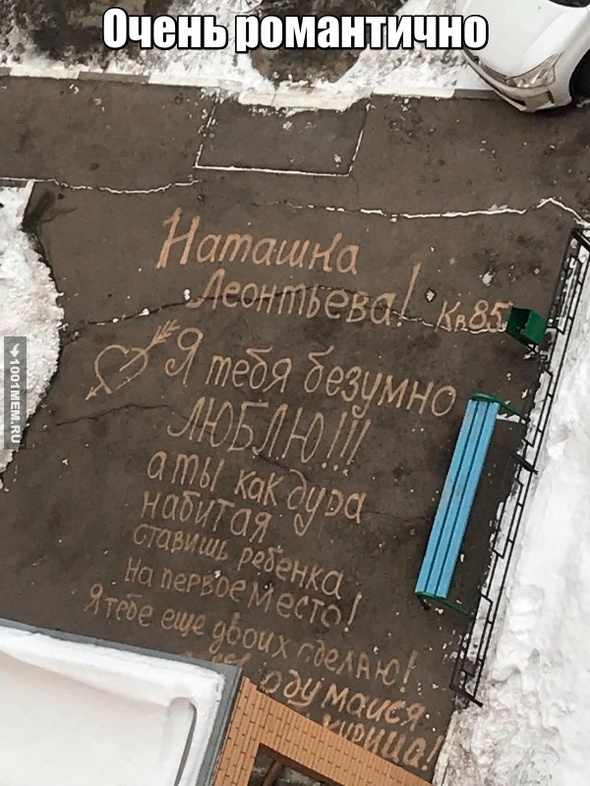 Очень романтично
Наташка
Леонтьева! Кв85
Я тебя безумно
ЛЮБЛЮ!!!
а ты как дура
набитая
ставишь ребенка
на первое место!
Я тебе еще двоих сделаю!
одумайся
курица!
1001MEM.RU